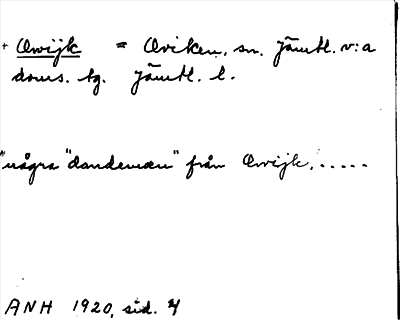 + Owijk = Oviken, sn. Jämtl. v:a
doms. tg. Jämtl. l.
"några "dandemæn" från Owijk, .....
ANH 1920, sid. 4